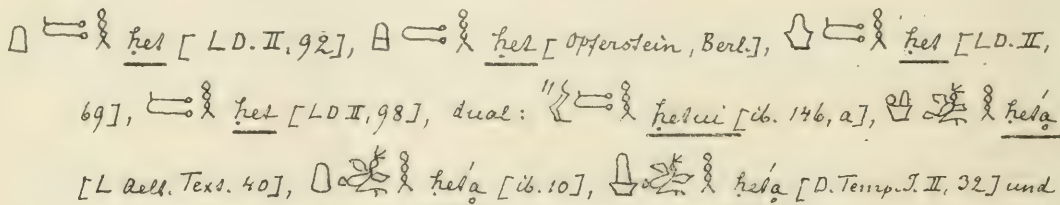 ḥeṯ [LD. II, 92], ḥeṯ [Opferstein, Berl.], ḥeṯ [LD. II,
69], ḥeṯ [LD II, 98], dual: ḥeṯui [ib. 146, a], ḥeṯá
[L Aelt. Text. 40], ḥeṯá [ib. 10], ḥeṯá [D. Temp. I. II, 32] und